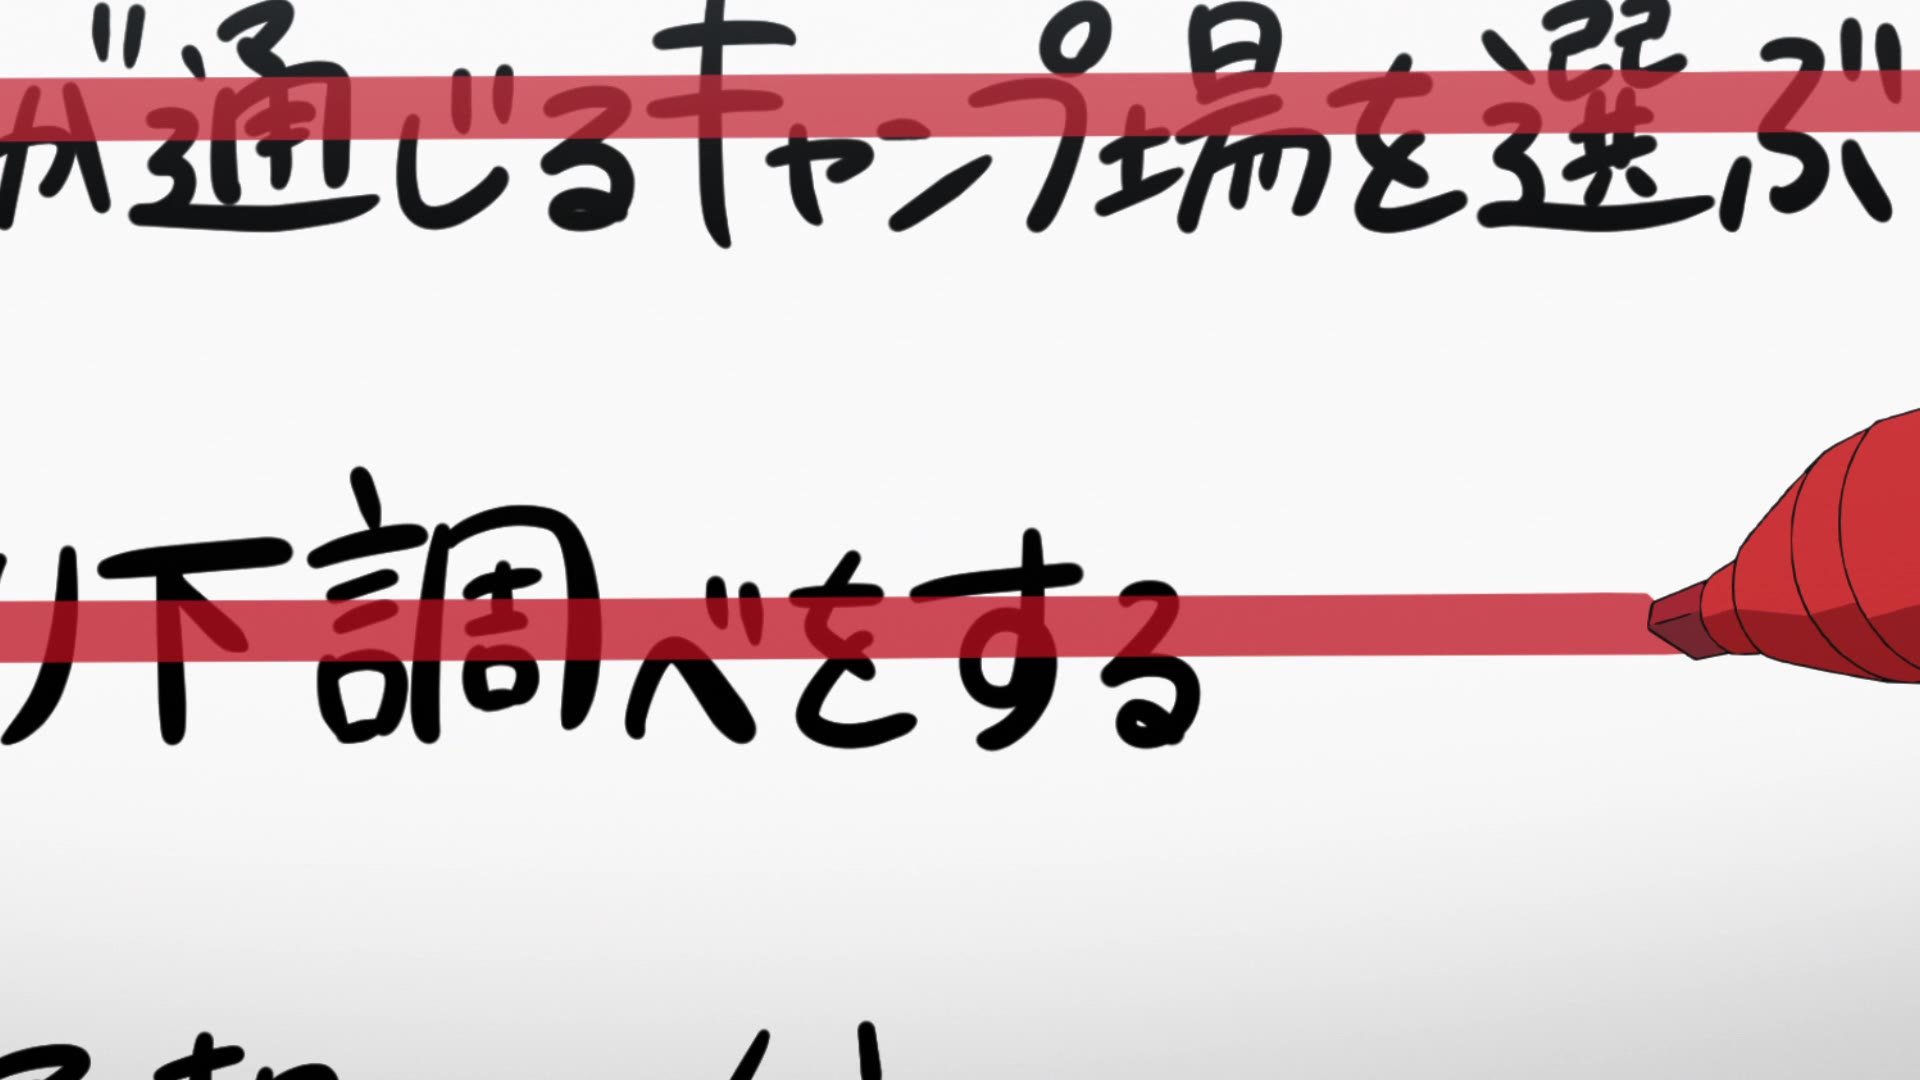 が通じるキャンプ場を選ぶ
り下調べをする